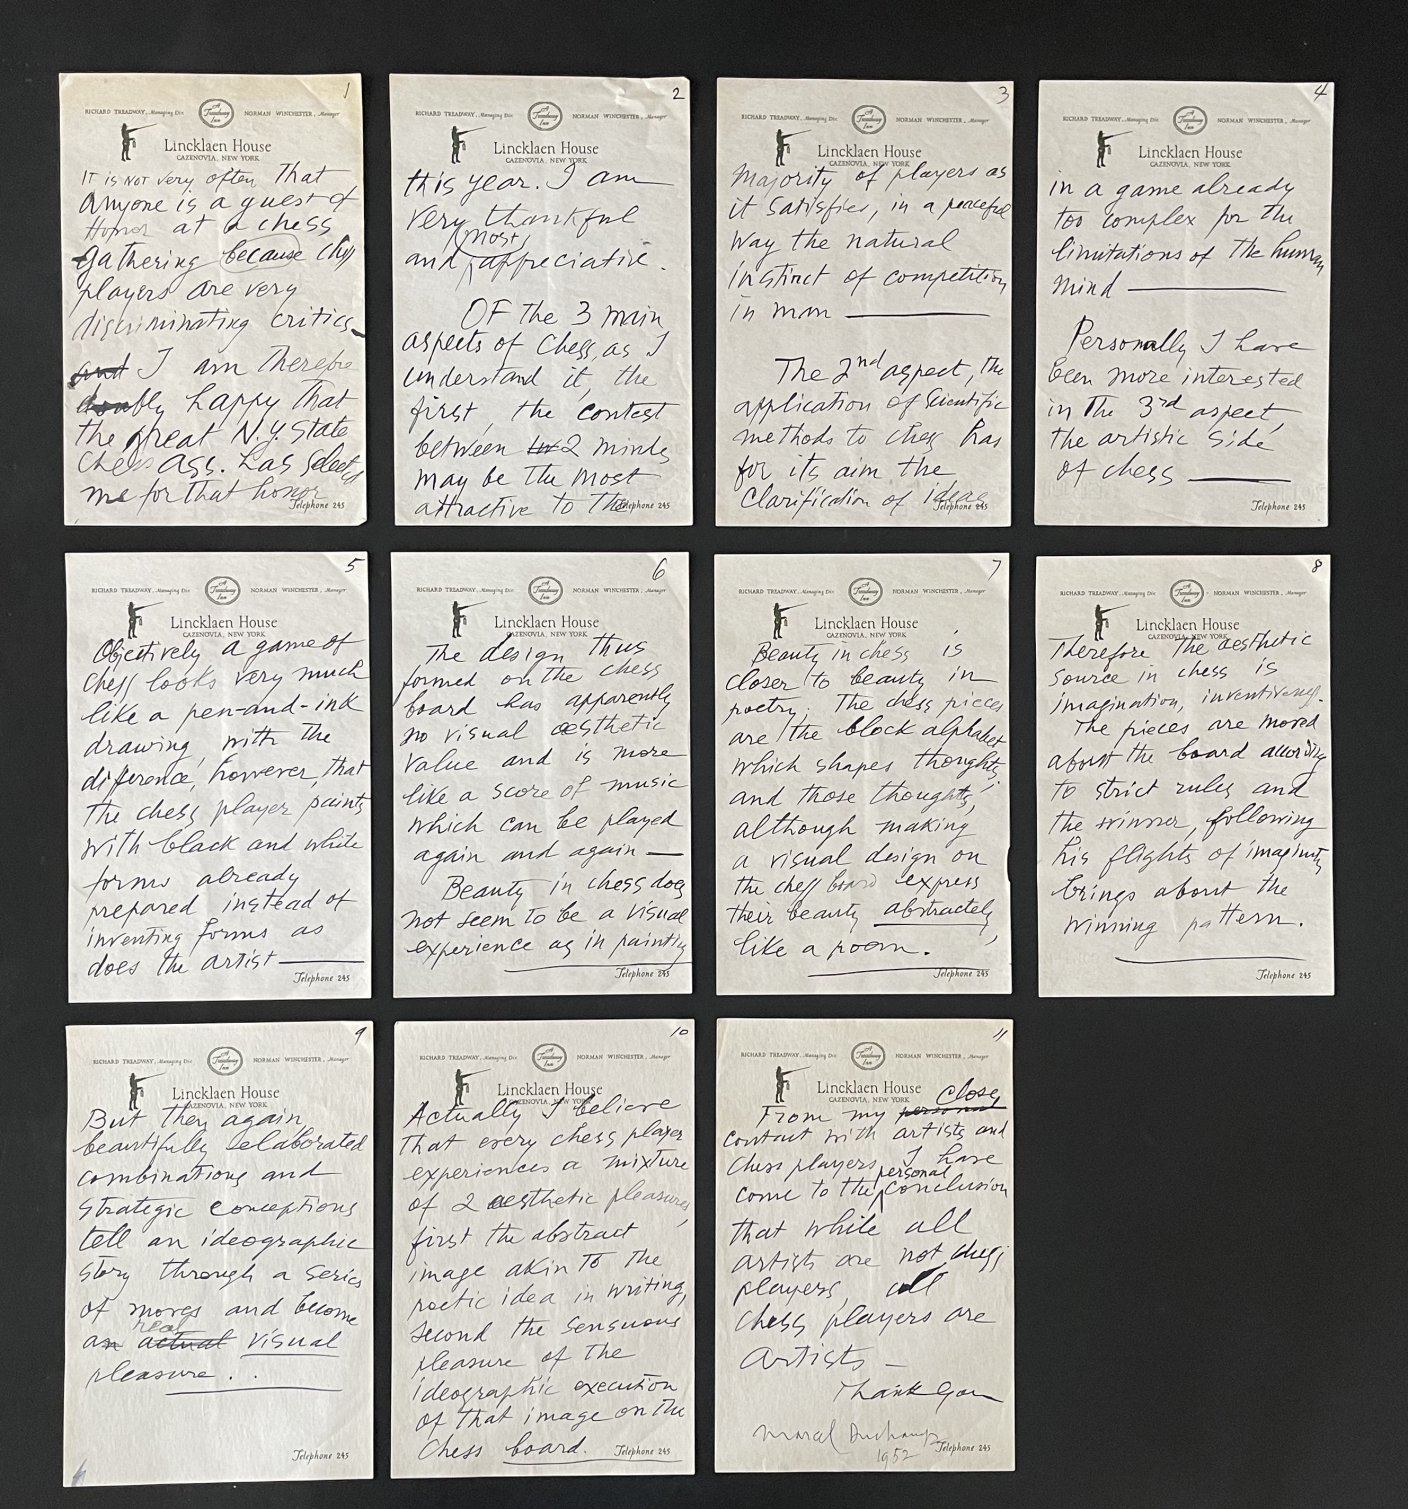 1
RICHARD TREADWAY, Managing Dir. A Treadway Inn NORMAN WINCHESTER, Manager
Lincklaen House
CAZENOVIA, NEW YORK
IT is NOT very often That
Anyone is a guest of
Honor at a chess
gathering because chess
players are very
discriminating critics
and I am Therefore
doubly happy That
the great N.Y. State
Chess Ass. has selected
me for that honor
Telephone 245
2
RICHARD TREADWAY, Managing Dir. A Treadway Inn NORMAN WINCHESTER, Manager
Lincklaen House
CAZENOVIA, NEW YORK
this year. I am
very thankful
most
and appreciative.
OF The 3 main
aspects of chess, as I
understand it, the
first, the contest
between 2 minds
may be the most
attractive to The
Telephone 245
3
RICHARD TREADWAY, Managing Dir. A Treadway Inn NORMAN WINCHESTER, Manager
Lincklaen House
CAZENOVIA, NEW YORK
majority of players as
it satisfies, in a peaceful
way the natural
instinct of competition
in man —
The 2nd aspect, the
application of scientific
methods to chess has
for its aim the
clarification of ideas
Telephone 245
4
RICHARD TREADWAY, Managing Dir. A Treadway Inn NORMAN WINCHESTER, Manager
Lincklaen House
CAZENOVIA, NEW YORK
in a game already
too complex for the
limitations of The human
mind —
Personally I have
been more interested
in The 3rd aspect,
the artistic side
of chess —
Telephone 245
5
RICHARD TREADWAY, Managing Dir. A Treadway Inn NORMAN WINCHESTER, Manager
Lincklaen House
CAZENOVIA, NEW YORK
Objectively a game of
chess looks very much
like a pen-and-ink
drawing with the
difference, however, that
the chess player paints
with black and white
forms already
prepared instead of
inventing forms as
does the artist —
Telephone 245
6
RICHARD TREADWAY, Managing Dir. A Treadway Inn NORMAN WINCHESTER, Manager
Lincklaen House
CAZENOVIA, NEW YORK
The design thus
formed on the chess
board has apparently
no visual aesthetic
value and is more
like a score of music
which can be played
again and again —
Beauty in chess does
not seem to be a visual
experience as in painting
Telephone 245
7
RICHARD TREADWAY, Managing Dir. A Treadway Inn NORMAN WINCHESTER, Manager
Lincklaen House
CAZENOVIA, NEW YORK
Beauty in chess is
closer to beauty in
poetry. The chess pieces
are the block alphabet
which shapes thoughts;
and those thoughts,
although making
a visual design on
the chess board express
their beauty abstractely,
like a poem.
Telephone 245
8
RICHARD TREADWAY, Managing Dir. A Treadway Inn NORMAN WINCHESTER, Manager
Lincklaen House
CAZENOVIA, NEW YORK
Therefore The aesthetic
source in chess is
imagination, inventiveness.
The pieces are moved
about the board according
to strict rules and
the winner, following
his flights of imaginity
brings about the
winning pattern.
Telephone 245
9
RICHARD TREADWAY, Managing Dir. A Treadway Inn NORMAN WINCHESTER, Manager
Lincklaen House
CAZENOVIA, NEW YORK
But then again
beautifully elaborated
combinations and
strategic conceptions
tell an ideographic
story through a series
of moves and become
real
an actual visual
pleasure . .
Telephone 245
10
RICHARD TREADWAY, Managing Dir. A Treadway Inn NORMAN WINCHESTER, Manager
Lincklaen House
CAZENOVIA, NEW YORK
Actually I believe
That every chess player
experiences a mixture
of 2 aesthetic pleasures,
first the abstract
image akin To The
poetic idea in writing,
second the sensuous
pleasure of the
ideographic execution
of that image on The
chess board.
Telephone 245
11
RICHARD TREADWAY, Managing Dir. A Treadway Inn NORMAN WINCHESTER, Manager
Lincklaen House
CAZENOVIA, NEW YORK
close
From my personal
contact with artists and
chess players, I have
personal
come to the conclusion
that while all
artists are not chess
players, all
chess players are
artists —
Thank you
Marcel Duchamp
1952
Telephone 245